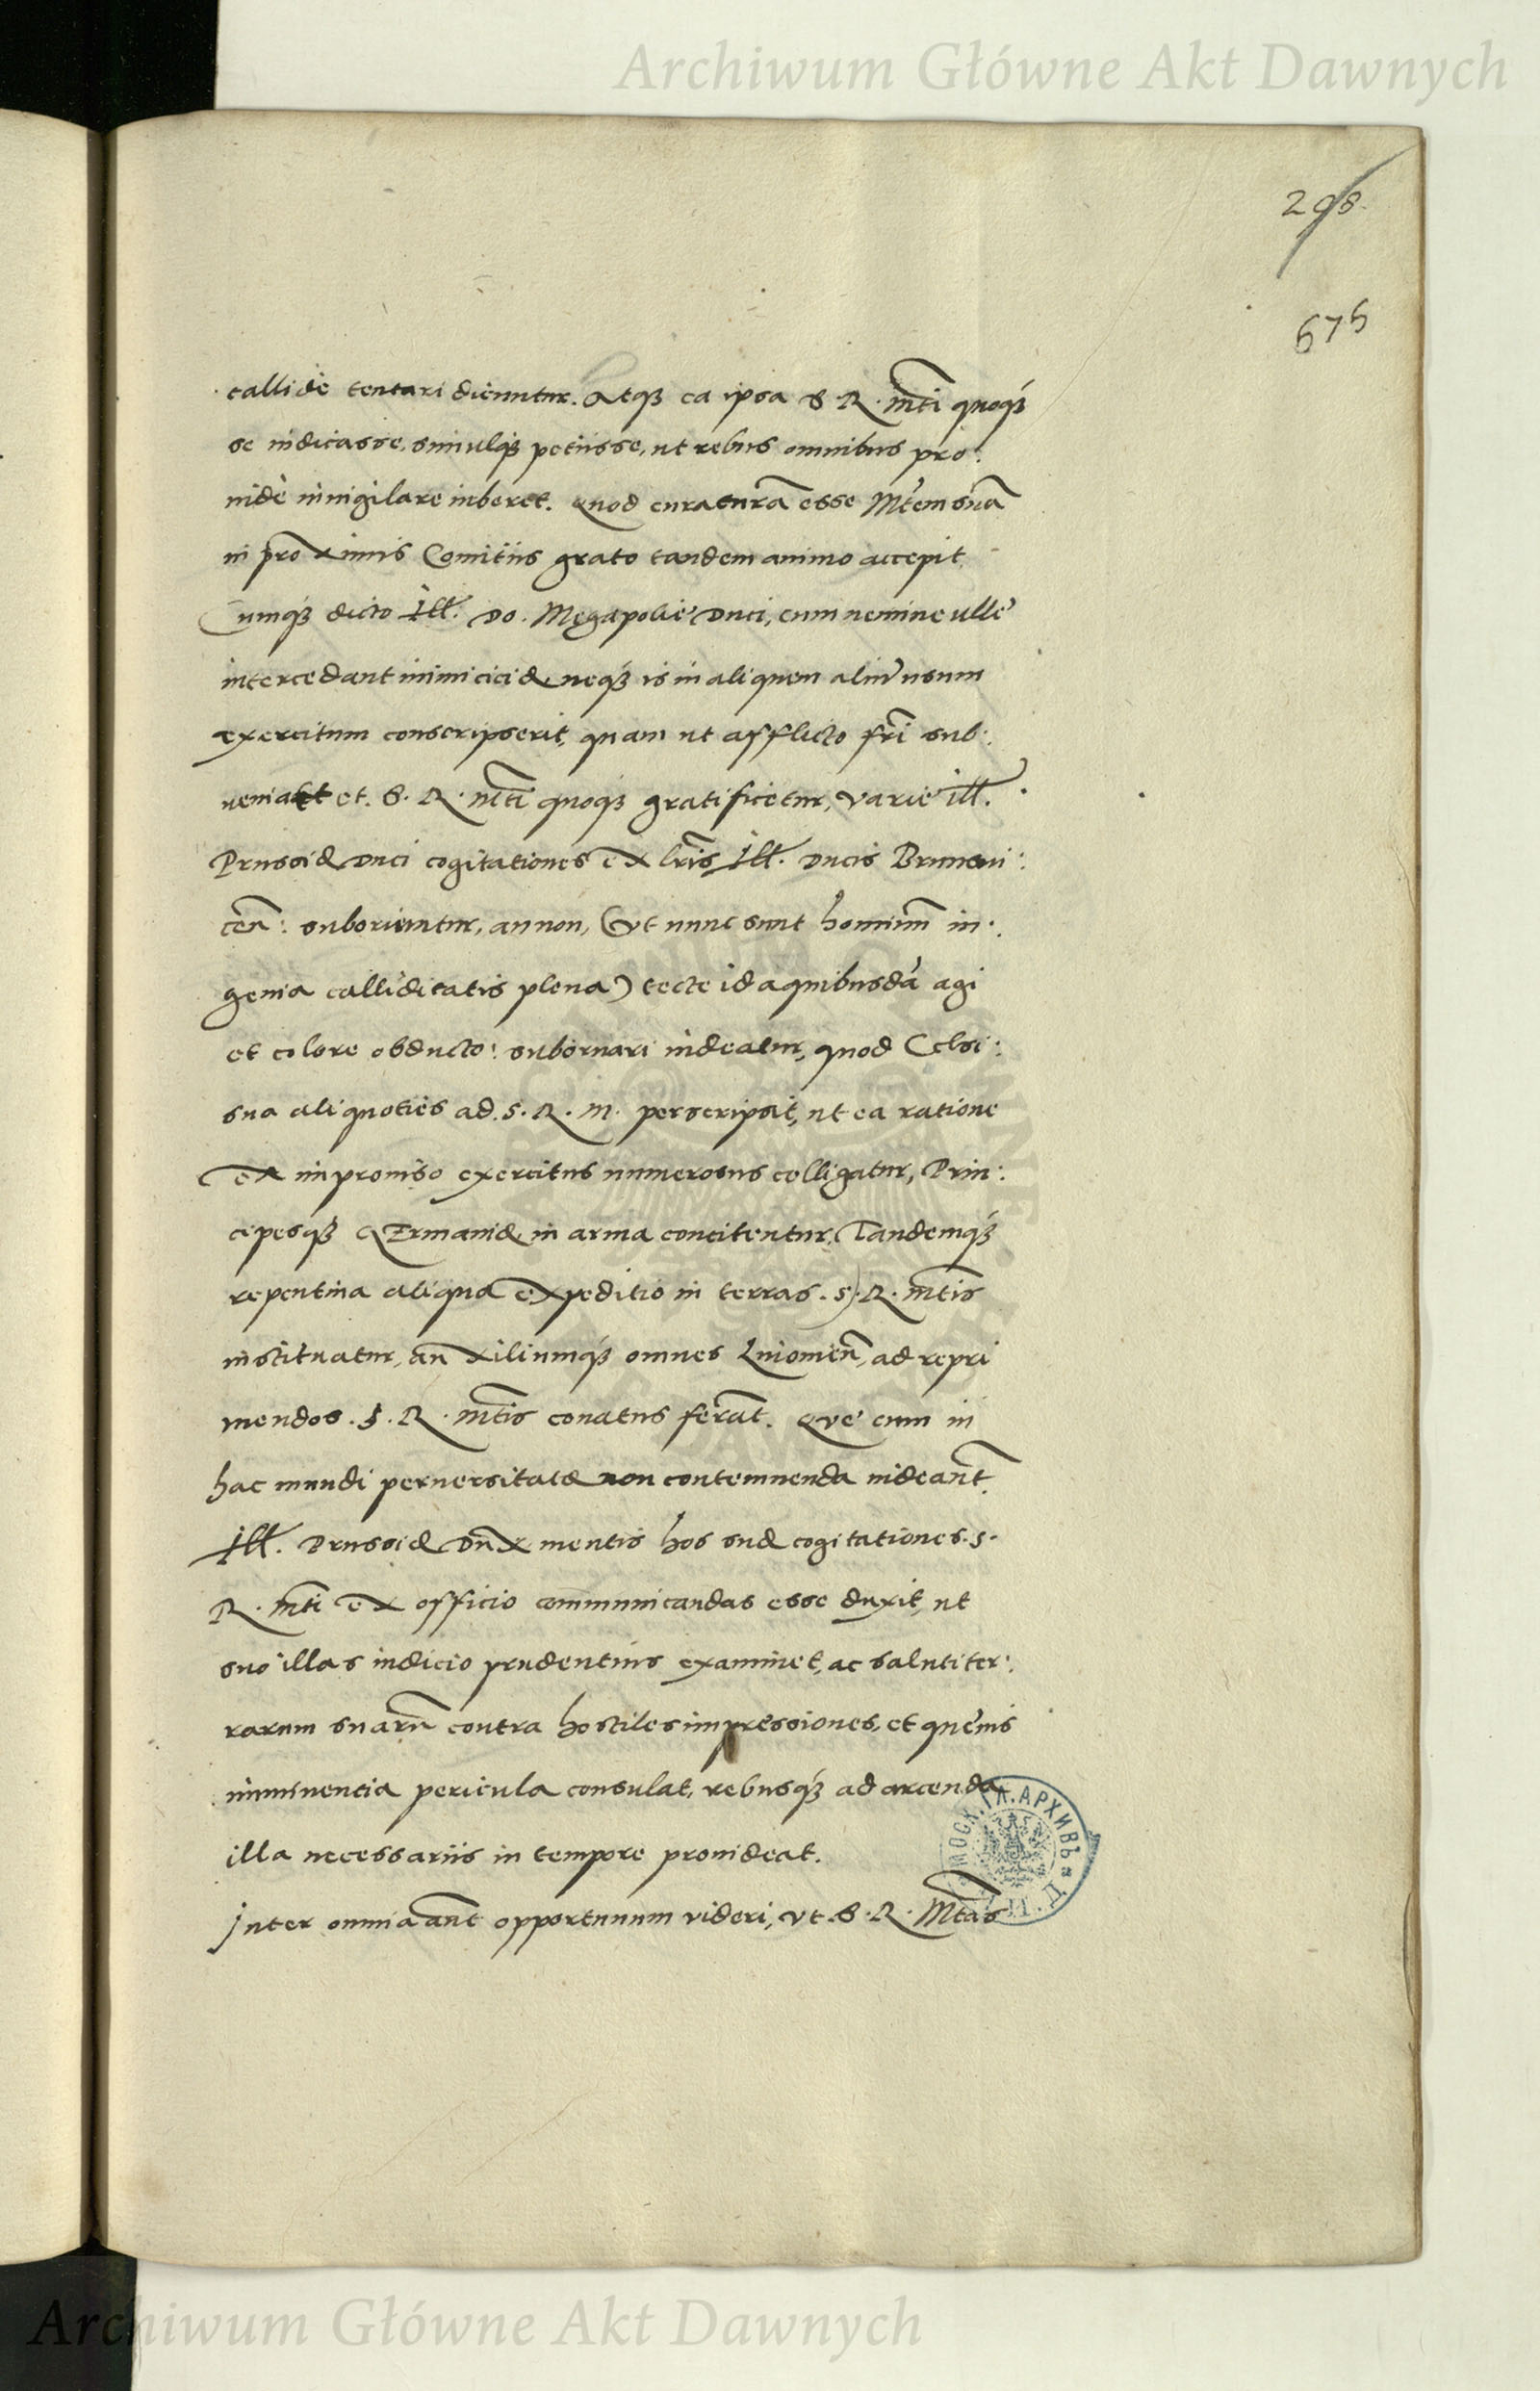 Archiwum Główne Akt Dawnych
298.
675
callidè tentari dicuntur. Atqꝫ ea ipsa S. R. mti quoqꝫ
se indicasse, simulqꝫ petiisse, ut rebus omnibus pro:
uidè inuigilare iuberet. Quod curaturā esse Mtem suā
in proximis Comitiis grato tandem animo accepit
Cumqꝫ dicto Ill. Do. Megapolie Duci, cum nemine ulle
intercedant inimicicie, neqꝫ is in aliquem aliū usum
exercitum conscripserit, quam ut afflicto fri sub:
ueniat et. S. R. mti quoqꝫ gratificetur, varie ill.
Prussie Duci cogitationes ex lris Ill. Ducis Brunsui:
cen: suboriuntur, an non, (vt nunc sunt hominum in:
genia calliditatis plena) tecte id a quibusdā agi
et colore obducto: subornari uideatur, quod Celsi:
sua aliquoties ad S. R. M. perscripsit, ut ea ratione
ex improuiso exercitus numerosus colligatur, Prin:
cipesqꝫ Germanie in arma concitentur, Tandemqꝫ
repentina aliqua expeditio in terras. S. R. mtis
instituatur, auxiliumqꝫ omnes Liuonien, ad repri
mendos. S. R. mtis conatus ferāt. Que cum in
hac mundi peruersitate non contemnenda uideant
Ill. Prussie Dux mentis hos sue cogitationes. S.
R. mti ex officio communicandas esse duxit, ut
suo illas iudicio prudentius examinet, ac saluti ter:
rarum suarū contra hostiles impressiones, et queuis
imminentia pericula consulat, rebusqꝫ ad arcenda
illa necessariis in tempore prouideat.
Inter omnia aut opportunum videri, vt S. R. Mtas
МОСК. ГЛ. АРХИВЪ
Archiwum Główne Akt Dawnych